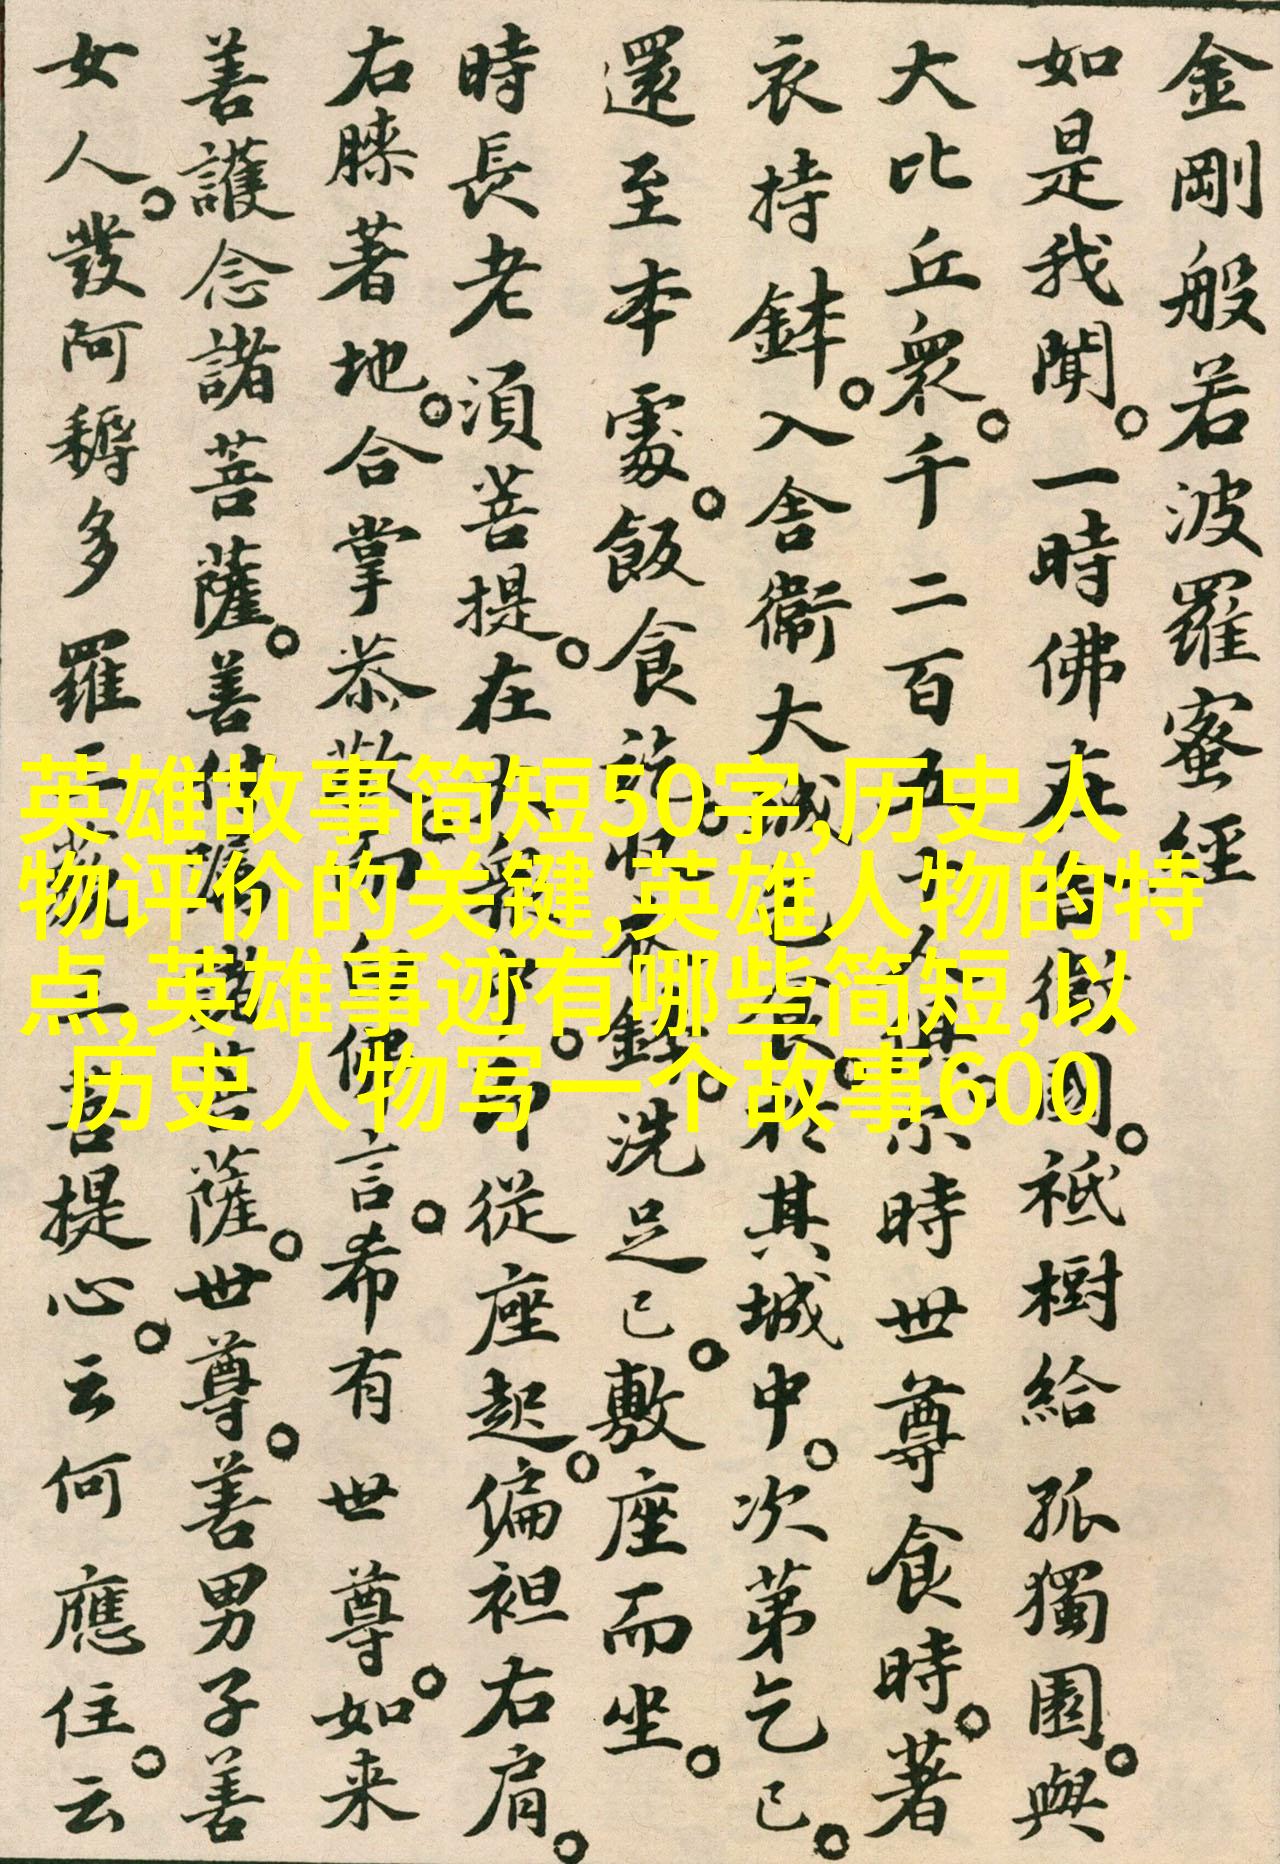 金剛般若波羅蜜經
如是我聞。一時佛在舍衛國。祇樹給孤獨園。與
大比丘衆。千二百五十人俱。尒時世尊食時。著
衣持鉢。入舍衛大城乞食。於其城中。次第乞已。
還至本處。飯食訖。收衣鉢。洗足已。敷座而坐。
時長老須菩提。在大衆中。即從座起。偏袒右肩。
右膝著地。合掌恭敬。而白佛言。希有世尊。如来
善護念諸菩薩。善付囑諸菩薩。世尊。善男子善
女人。發阿耨多羅三藐三菩提心。云何應住。云
英雄故事简短50字,历史人
物评价的关键,英雄人物的特
点,英雄事迹有哪些简短,以
历史人物写一个故事600